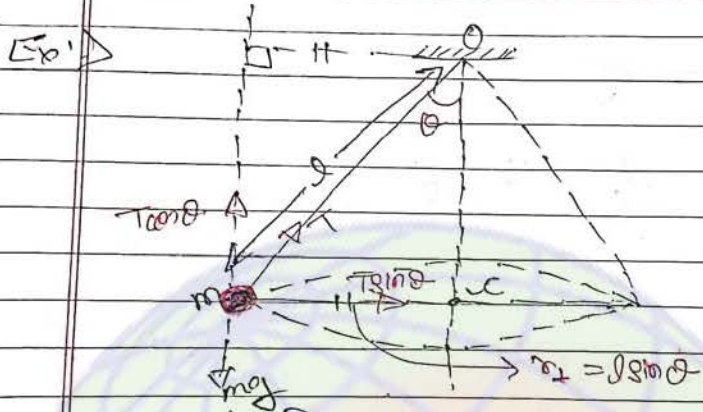 Exp'
O
θ
l
Tcosθ
T
m
Tsinθ
C
r⊥ = lsinθ
mg